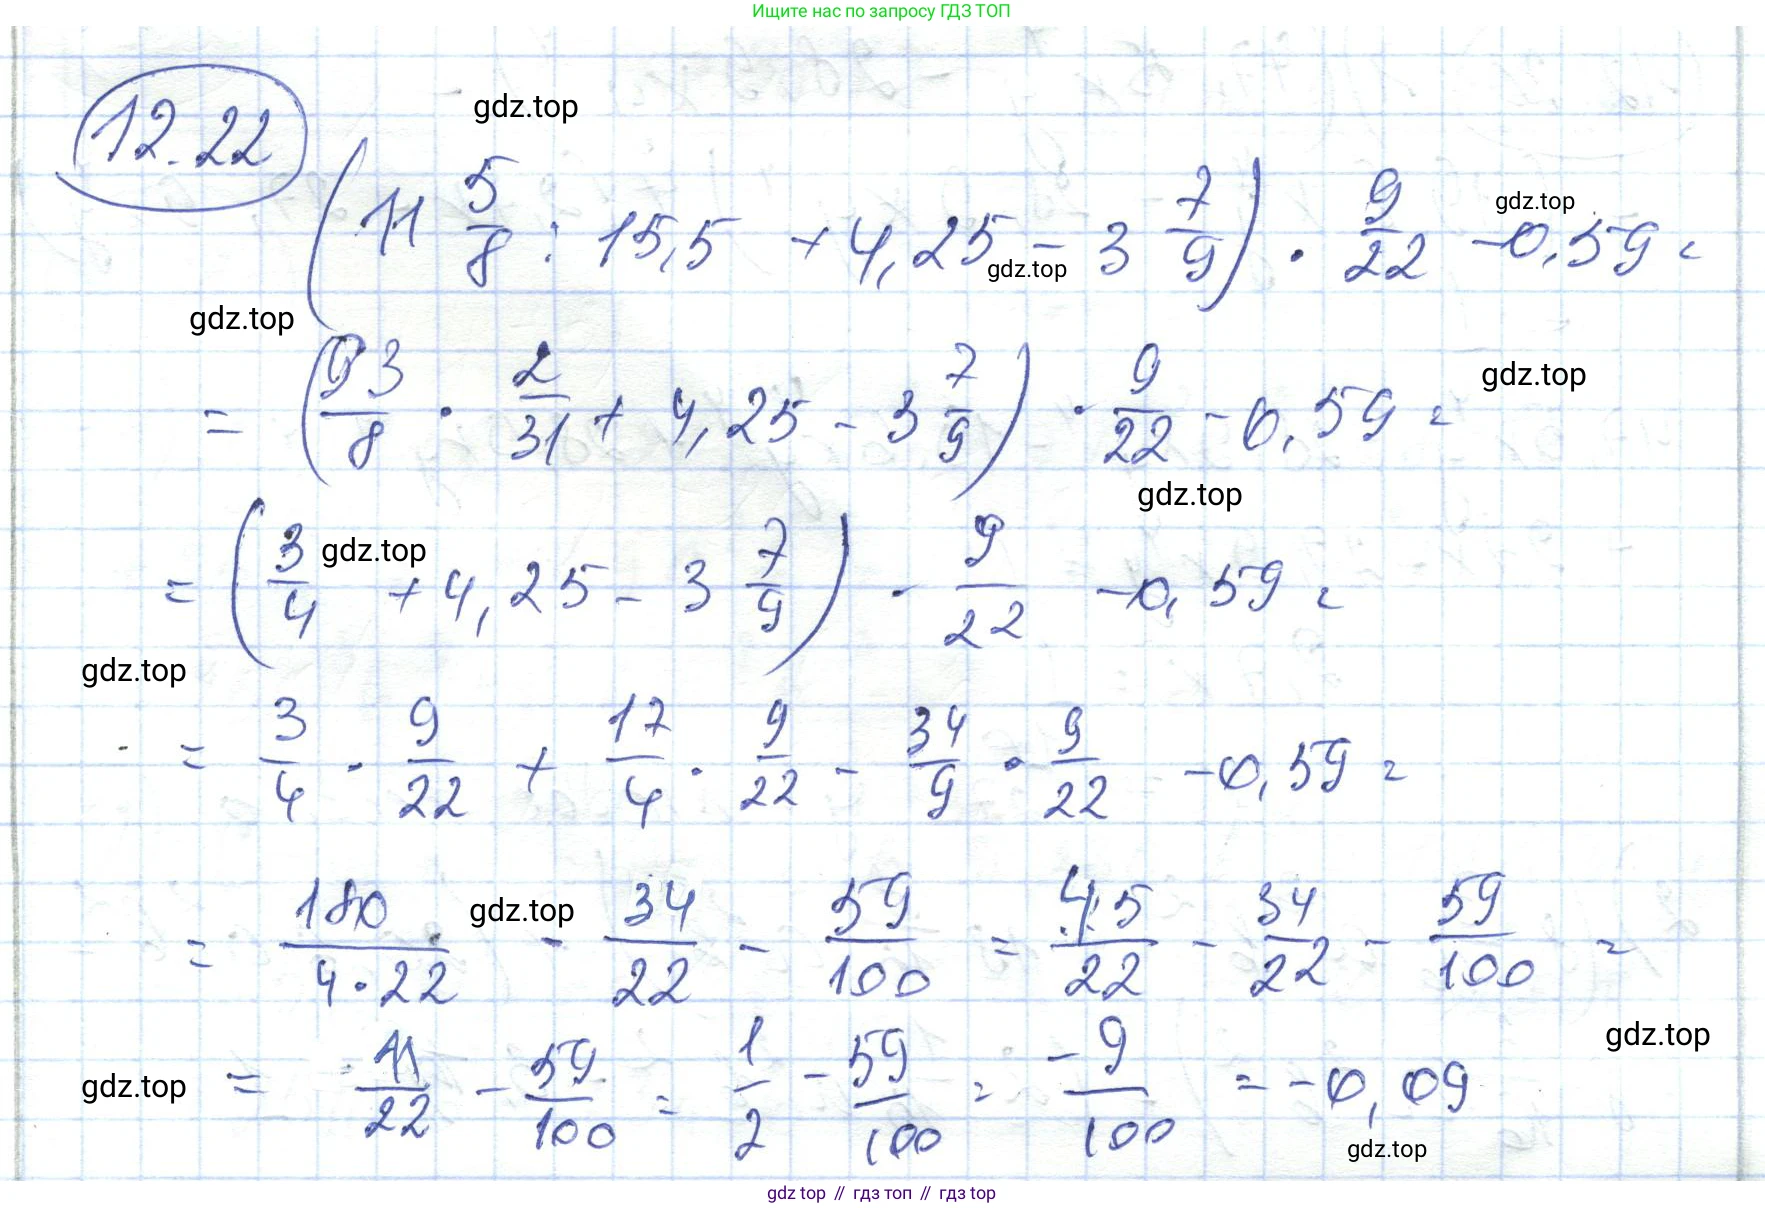 Ищите нас по запросу ГДЗ ТОП
12.22
gdz.top
(11 5/8 : 15,5 + 4,25 - 3 7/9) · 9/22 - 0,59 =
gdz.top
gdz.top
gdz.top
= (93/8 · 2/31 + 4,25 - 3 7/9) · 9/22 - 0,59 =
gdz.top
gdz.top
= (3/4 + 4,25 - 3 7/9) · 9/22 - 0,59 =
gdz.top
gdz.top
= 3/4 · 9/22 + 17/4 · 9/22 - 34/9 · 9/22 - 0,59 =
= 180/4·22 - 34/22 - 59/100 = 45/22 - 34/22 - 59/100 =
gdz.top
gdz.top
= 11/22 - 59/100 = 1/2 - 59/100 = -9/100 = -0,09
gdz.top
gdz.top
gdz top // гдз топ // gdz top